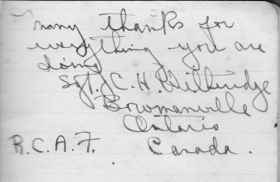 many thanks for
everything you are
doing
Sgt. C. H.
Bowmanville
Ontario
R.C.A.F. Canada.